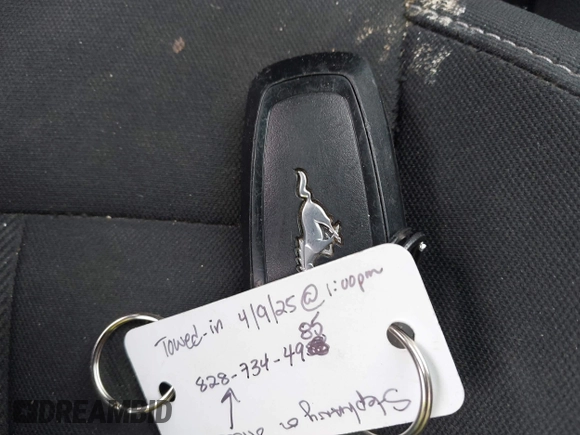 Towed-in 4/9/25 @ 1:00pm
828-734-4985
DREAMBID